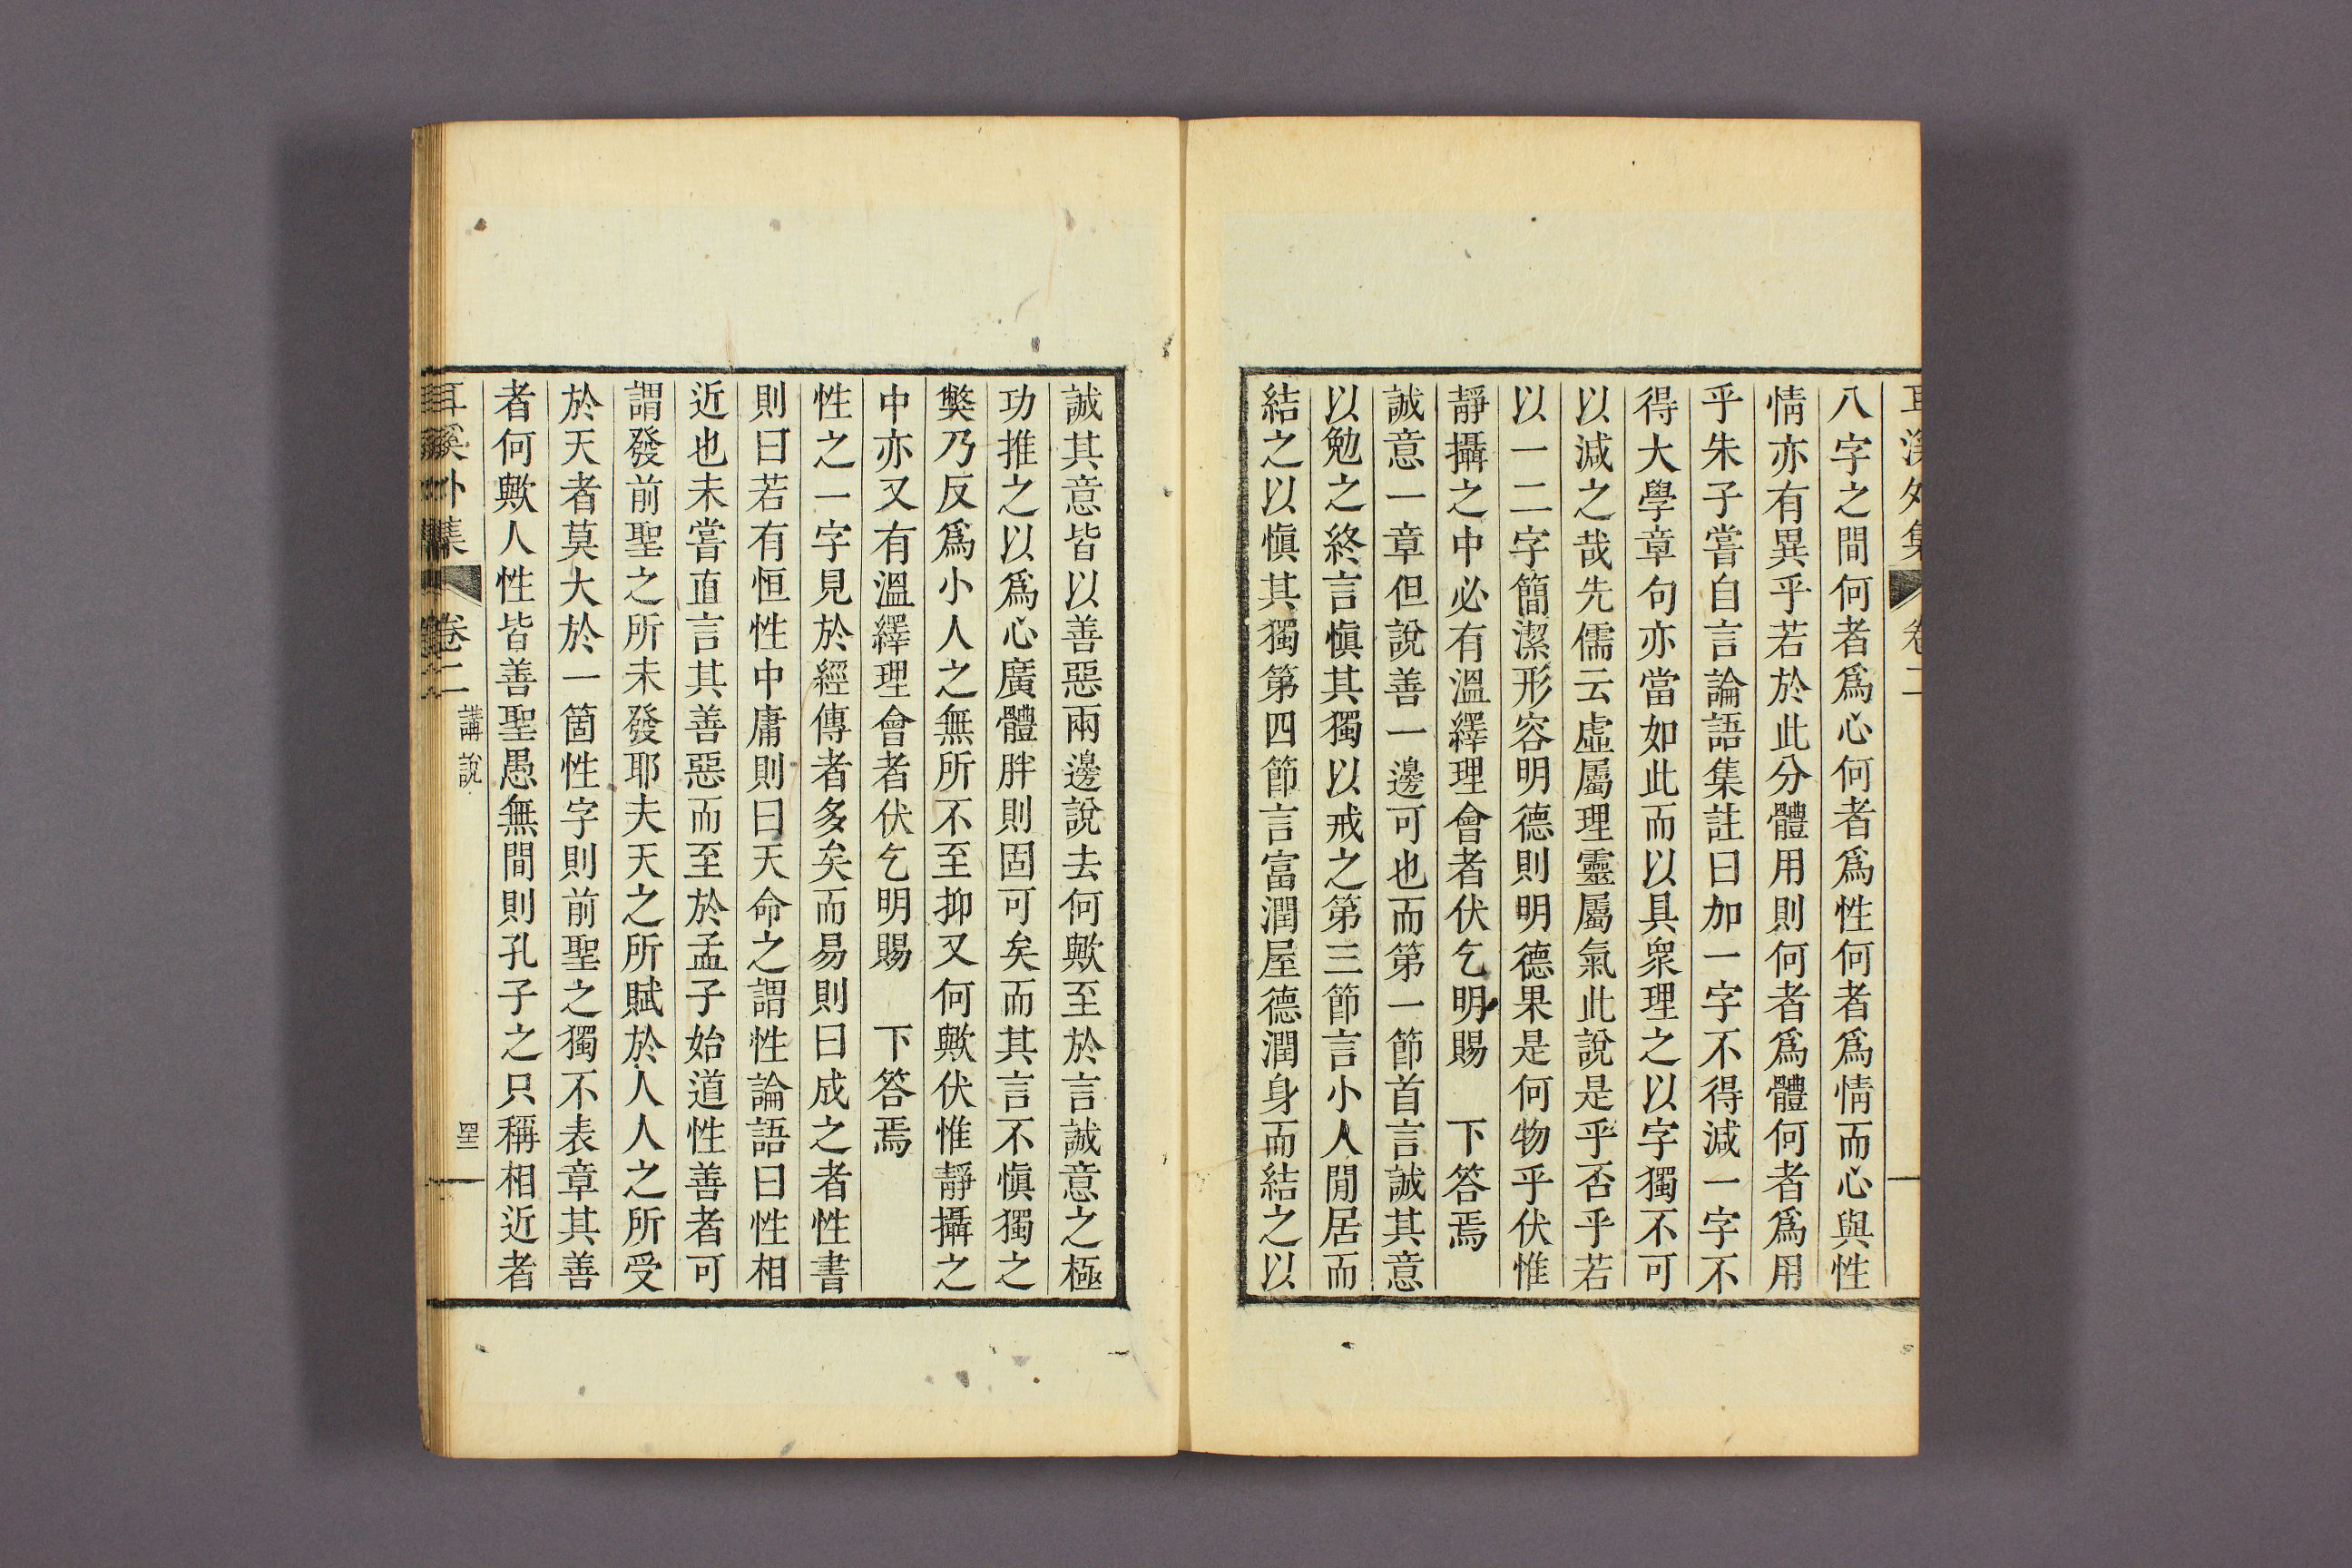 耳溪外集 卷二
八字之間何者爲心何者爲性何者爲情而心與性
情亦有異乎若於此分體用則何者爲體何者爲用
乎朱子嘗自言論語集註曰加一字不得減一字不
得大學章句亦當如此而以具衆理之以字獨不可
以減之哉先儒云虛屬理靈屬氣此說是乎否乎若
以一二字簡潔形容明德則明德果是何物乎伏惟
靜攝之中必有溫繹理會者伏乞明賜 下答焉
誠意一章但說善一邊可也而第一節首言誠其意
以勉之終言愼其獨以戒之第三節言小人閒居而
結之以愼其獨第四節言富潤屋德潤身而結之以
誠其意皆以善惡兩邊說去何歟至於言誠意之極
功推之以爲心廣體胖則固可矣而其言不愼獨之
獘乃反爲小人之無所不至抑又何歟伏惟靜攝之
中亦又有溫繹理會者伏乞明賜 下答焉
性之一字見於經傳者多矣而易則曰成之者性書
則曰若有恒性中庸則曰天命之謂性論語曰性相
近也未嘗直言其善惡而至於孟子始道性善者可
謂發前聖之所未發耶夫天之所賦於人人之所受
於天者莫大於一箇性字則前聖之獨不表章其善
者何歟人性皆善聖愚無間則孔子之只稱相近者
耳溪外集 卷二 講說 罜